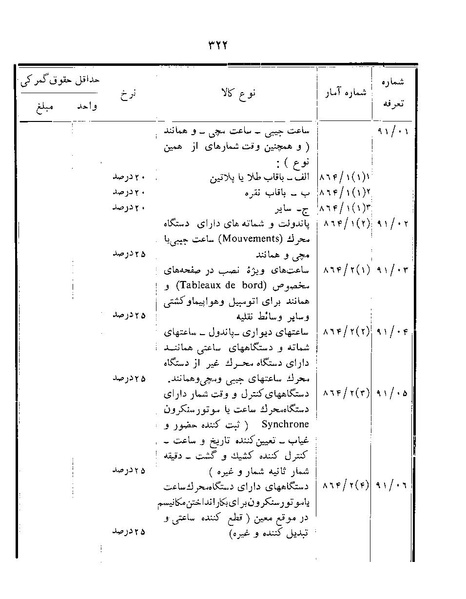 ۳۲۲
شماره تعرفه | شماره آمار | نوع کالا | نرخ | حداقل حقوق گمرکی
واحد | مبلغ
۹۱/۰۱ ساعت جیبی ـ ساعت مچی ـ و همانند
( و همچنین وقت شمارهای از همین
نوع ) :
۸۶۴/۱(۱)۱ الف ـ باقاب طلا یا پلاتین ۲۰درصد
۸۶۴/۱(۱)۲ ب ـ باقاب نقره ۲۰درصد
۸۶۴/۱(۱)۳ ج ـ سایر ۲۰درصد
۹۱/۰۲ ۸۶۴/۱(۲) پاندولت و شماته های دارای دستگاه
محرك (Mouvements) ساعت جیبی یا
مچی و همانند ۲۵درصد
۹۱/۰۳ ۸۶۴/۲(۱) ساعت‌های ویژهٔ نصب در صفحه‌های
مخصوص (Tableaux de bord) و
همانند برای اتومبیل وهواپیماوکشتی
وسایر وسائط نقلیه ۲۵درصد
۹۱/۰۴ ۸۶۴/۲(۲) ساعتهای دیواری ـ پاندول ـ ساعتهای
شماته و دستگاههای ساعتی همانند
دارای دستگاه محرك غیر از دستگاه
محرك ساعتهای جیبی ومچی‌وهمانند. ۲۵درصد
۹۱/۰۵ ۸۶۴/۲(۳) دستگاههای کنترل و وقت شمار دارای
دستگاه‌محرك ساعت یا موتورسنکرون
Synchrone ( ثبت کننده حضور و
غیاب ـ تعیین‌کننده تاریخ و ساعت ـ
کنترل کننده کشیك و گشت ـ دقیقه
شمار ثانیه شمار و غیره ) ۲۵درصد
۹۱/۰۶ ۸۶۴/۲(۴) دستگاههای دارای دستگاه‌محرك‌ساعت
یاموتورسنکرون‌برای‌بکارانداختن‌مکانیسم
در موقع معین ( قطع کننده ساعتی و
تبدیل کننده و غیره) ۲۵درصد